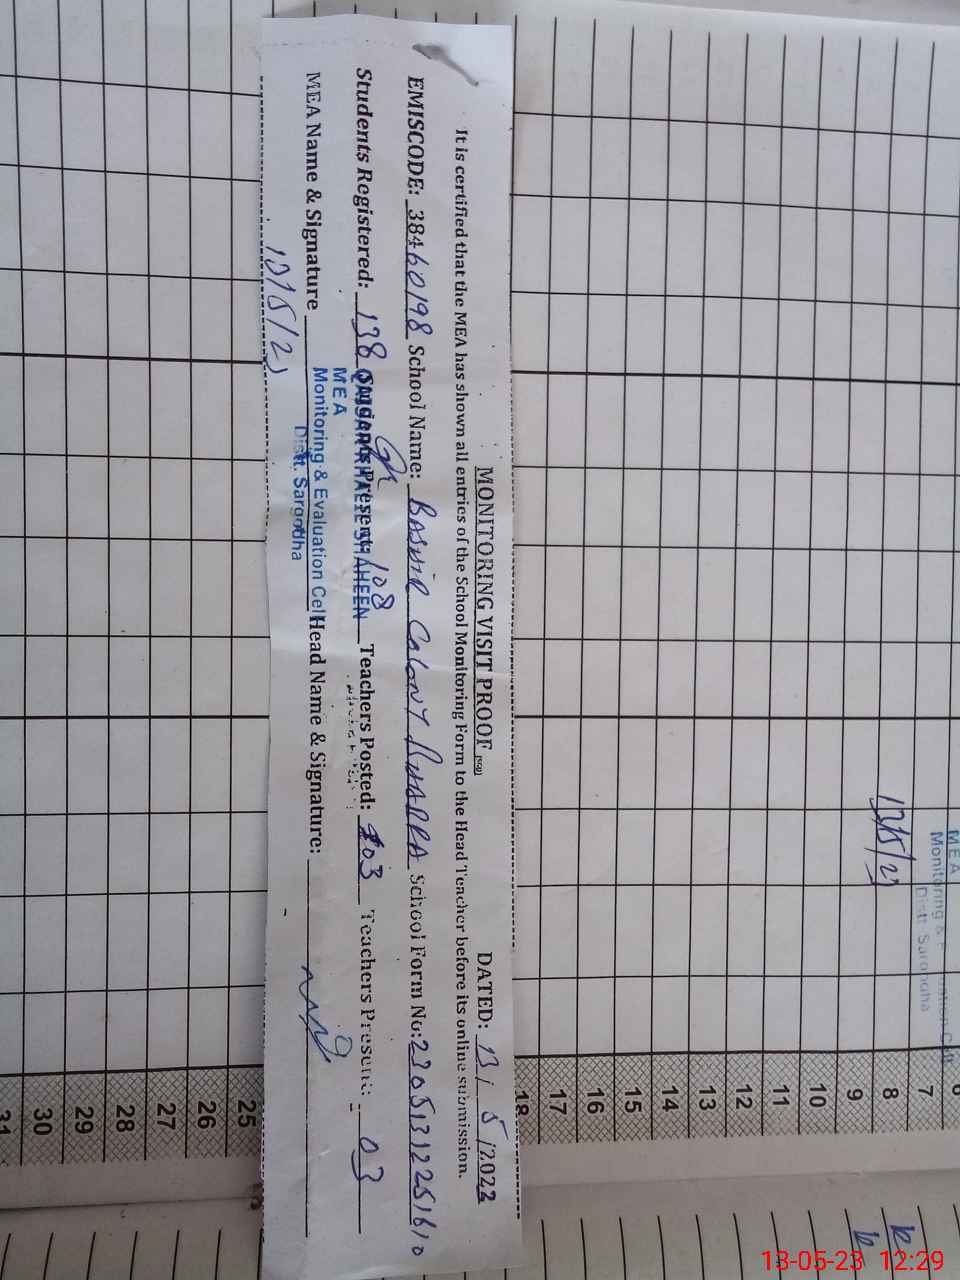 MONITORING VISIT PROOF
DATED: 13/ 5 /2023
It is certified that the MEA has shown all entries of the School Monitoring Form to the Head Teacher before its online submission.
EMISCODE: 38460198 School Name: BASHIR COLONY School Form No:
Students Registered: 138 Students Present: 108 Teachers Posted: 03 Teachers Present: 03
SHAHEEN
MEA
Monitoring & Evaluation Cell
Distt. Sargodha
MEA Name & Signature Head Name & Signature:
MEA
Monitoring &
Distt Sargodha
6
7
8
9
10
11
12
13
14
15
16
17
18
25
26
27
28
29
30
31
13-05-23 12:29